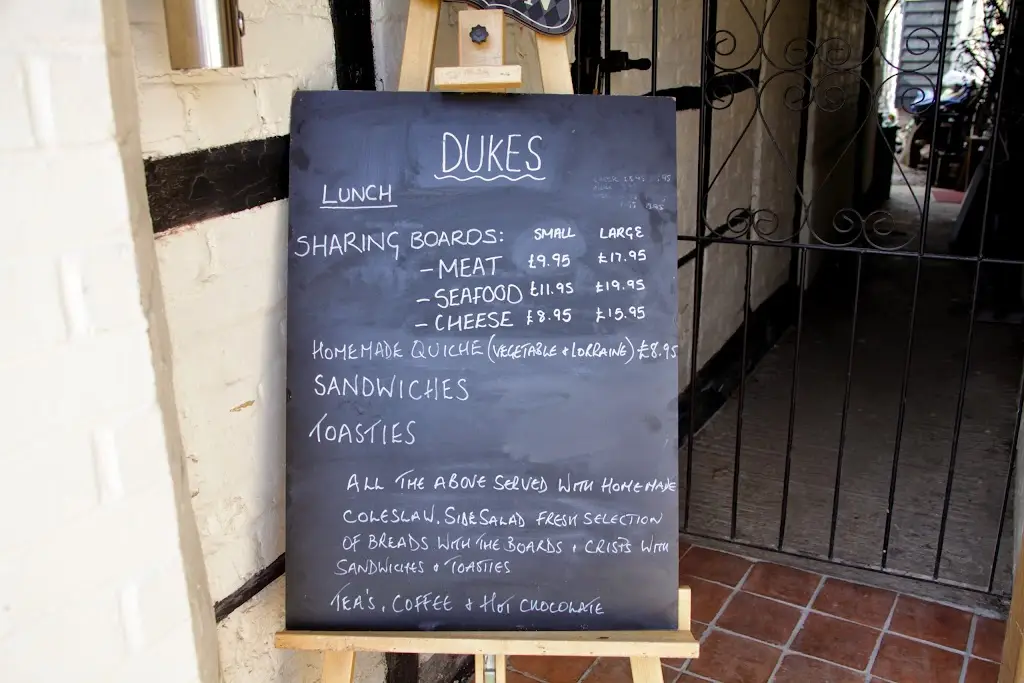 DUKES
LUNCH
SHARING BOARDS: SMALL LARGE
- MEAT £9.95 £17.95
- SEAFOOD £11.95 £19.95
- CHEESE £8.95 £15.95
HOMEMADE QUICHE (VEGETABLE + LORRAINE) £8.95
SANDWICHES
TOASTIES
ALL THE ABOVE SERVED WITH HOMEMADE
COLESLAW, SIDE SALAD FRESH SELECTION
OF BREADS WITH THE BOARDS + CRISPS WITH
SANDWICHES + TOASTIES
TEA'S, COFFEE + HOT CHOCOLATE